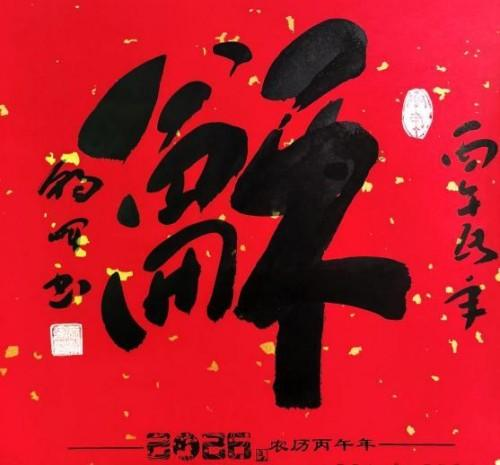 龢
丙午马年
书
2026 农历丙午年